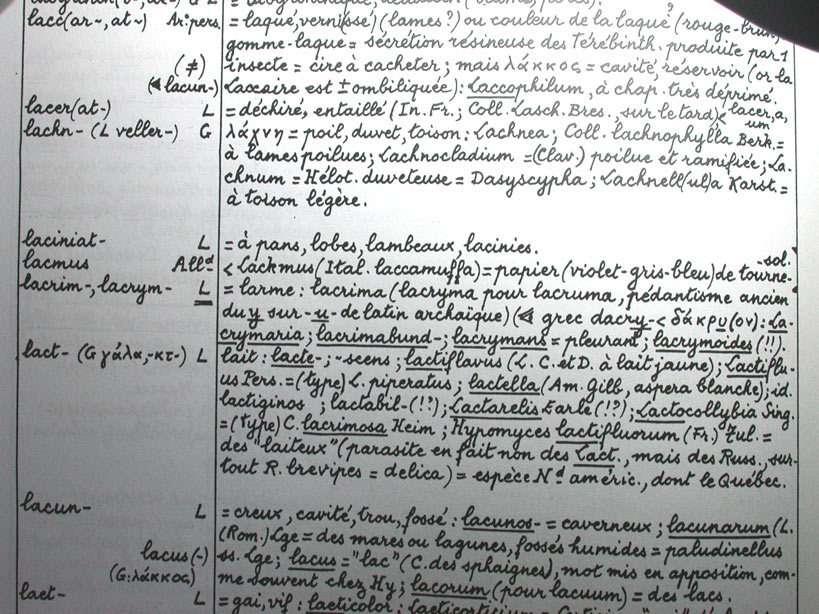 lacc(ar-, at-) Ar: pers. = laque, vernis(sé) (lames?) ou couleur de la laque (rouge-brun,
gomme-laque = sécrétion résineuse des Térébinth. produite par 1
(≠) insecte = cire à cacheter; mais λάκκος = cavité, réservoir (or la
(∢ lacun-) Laccaire est ± ombiliquée): Laccophilum, à chap. très déprimé.
lacer(at-) L = déchiré, entaillé (In. Fr.; Coll. Lasch. Bres., sur le tard) < lacer, a, um
lachn- (L veller-) G λάχνη = poil, duvet, toison: Lachnea; Coll. lachnophylla Berk. =
à lames poilues; Lachnocladium = (Clav.) poilue et ramifiée; La-
chnum = Hélot. duveteuse = Dasyscypha; Lachnell(ul)a Karst. =
à toison légère.
laciniat- L = à pans, lobes, lambeaux, lacinies.
lacmus Alld < Lackmus (Ital. laccamuffa) = papier (violet-gris-bleu) de tourne-sol.
lacrim-, lacrym- L = larme: lacrima (lacryma pour lacruma, pédantisme ancien
du y sur -u- de latin archaïque) (∢ grec dacry- < δάκρυ(ον): La-
crymaria; lacrimabund-; lacrymans = pleurant; lacrymoides (!!).
lact- (G γάλα, -κτ-) L lait: lacte-; -scens; lactiflavus (L. C. et D. à lait jaune); Lactiflu-
us Pers. = (type) L. piperatus; lactella (Am. Gilb, aspera blanche); id.
lactiginos; lactabil- (!?); Lactarelis Earle (!?); Lactocollybia Sing.
= (type) C. lacrimosa Heim; Hypomyces lactifluorum (Fr.) Tul. =
des "laiteux" (parasite en fait non des Lact., mais des Russ., sur-
tout R. brevipes = delica) = espèce Nd améric., dont le Québec.
lacun- L = creux, cavité, trou, fossé: lacunos- = caverneux; lacunarum (L.
(Rom.) Lge = des mares ou lagunes, fossés humides = paludinellus
lacus(-) ss. Lge; lacus = "lac" (C. des sphaignes), mot mis en apposition, com-
(G: λάκκος) me souvent chez Hy; lacorum (pour lacuum) = des lacs.
laet- L = gai, vif: laeticolor; laeticorticium =